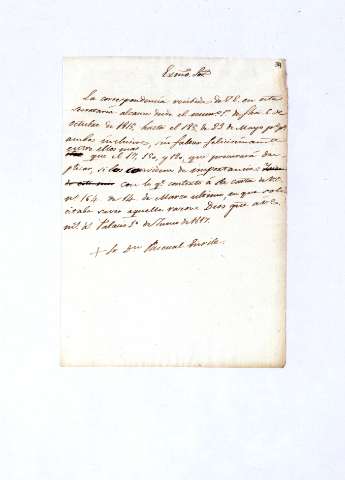 39
Exmo. Sor.
La correspondencia recibida de V.E. en esta
secretaría alcanza desde el num.º 1.º de fha. 6. de
octubre de 1816, hasta el 185 de 29 de Mayo
ambos inclusive, sin faltar
entre ellos mas
que el 17, 150, y 180, que procurará du-
plicar, si los considera de importancia;
con lo q.e contexto á la carta de V.E.
n.º 164 de 14 de Marzo ultimo, en que soli-
citaba saver aquella razon. Dios gũe á V.E.
m.s a.s Palacio 5 de Junio de 1817.
+ Sr. Dn. Pascual Enrile.